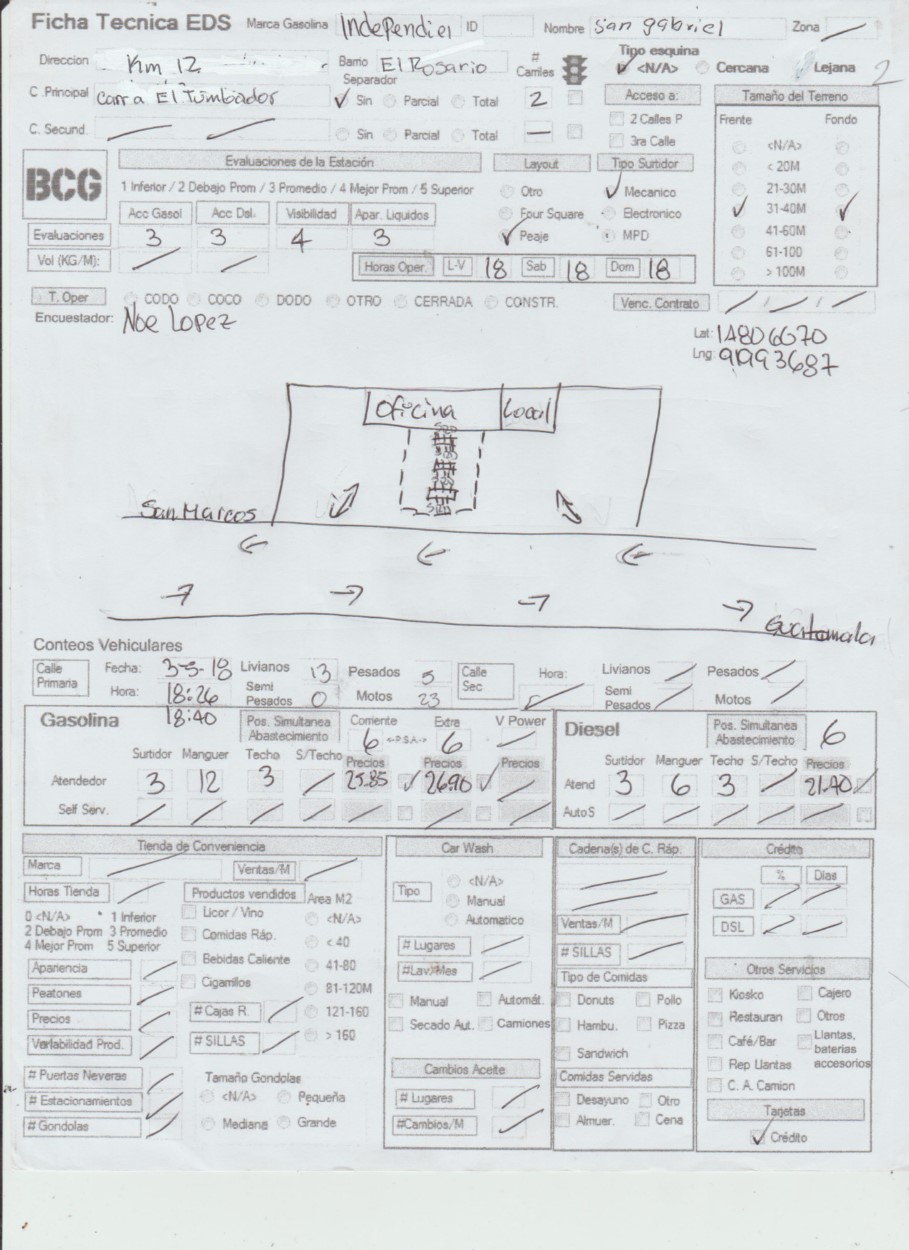 Ficha Tecnica EDS Marca Gasolina Independien ID Nombre San gabriel Zona /
Direccion Km 12 Barrio El Rosario # Carriles Tipo esquina ✓ <N/A> Cercana Lejana 2
Separador
C Principal Carr a El Tumbador ✓ Sin Parcial Total 2 Acceso a: Tamaño del Terreno
C. Secund. / / Sin Parcial Total — 2 Calles P Frente Fondo
3ra Calle <N/A>
BCG Evaluaciones de la Estación Layout Tipo Surtidor < 20M
1 Inferior / 2 Debajo Prom / 3 Promedio / 4 Mejor Prom / 5 Superior Otro ✓ Mecanico 21-30M
Acc Gasol Acc Dsl. Visibilidad Apar. Liquidos Four Square Electronico ✓ 31-40M ✓
Evaluaciones 3 3 4 3 ✓ Peaje MPD 41-60M
Vol (KG/M): / / Horas Oper. L-V 18 Sab 18 Dom 18 61-100
> 100M
T. Oper CODO COCO DODO OTRO CERRADA CONSTR. Venc. Contrato / / / /
Encuestador: Noe Lopez
Lat: 14806670
Lng: 91993687
Oficina Local
San Marcos
Guatamala
Conteos Vehiculares
Calle Primaria Fecha: 3-5-18 Livianos 13 Pesados 5 Calle Sec Hora: / Livianos / Pesados /
Hora: 18:26 Semi Pesados 0 Motos 23 Semi Pesados / Motos /
18:40
Gasolina Pos. Simultanea Abastecimiento Corriente 6 <-P.S.A-> Extre 6 V Power / Diesel Pos. Simultanea Abastecimiento 6
Surtidor Manguer Techo S/Techo Precios Precios Precios Surtidor Manguer Techo S/Techo Precios
Atendedor 3 12 3 / 25.85 ✓ 26.90 ✓ / Atend 3 6 3 / 21.40 ✓
Self Serv. / / / / / / / Auto S / / / / /
Tienda de Conveniencia Car Wash Cadena(s) de C. Ráp. Crédito
Marca / Ventas/M / <N/A> % Dias
Horas Tienda / Productos vendidos Area M2 Tipo Manual GAS / /
0 <N/A> * 1 Inferior Licor / Vino <N/A> Automatico Ventas/M / DSL / /
2 Debajo Prom 3 Promedio Comidas Ráp. < 40 # Lugares / # SILLAS /
4 Mejor Prom 5 Superior Bebidas Caliente 41-80 #Lav/Mes / Tipo de Comidas Otros Servicios
Apariencia / Cigarrillos 81-120M Manual Automát. Donuts Pollo Kiosko Cajero
Peatones / # Cajas R. / 121-160 Secado Aut. Camiones Hambu. Pizza Restauran Otros
Precios / # SILLAS / > 160 Sandwich Café/Bar Llantas, baterias accesorios
Variabilidad Prod. / Rep Llantas
# Puertas Neveras / Tamaño Gondolas Cambios Aceite Comidas Servidas C. A. Camion
# Estacionamientos / <N/A> Pequeña # Lugares / Desayuno Otro Tarjetas
# Gondolas / Mediana Grande #Cambios/M / Almuer. Cena ✓ Crédito